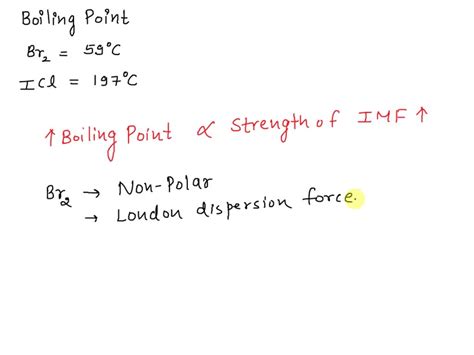 Boiling Point
Br₂ = 59°C
ICl = 197°C
↑ Boiling Point ∝ Strength of IMF ↑
Br₂ → Non-Polar
→ London dispersion force.